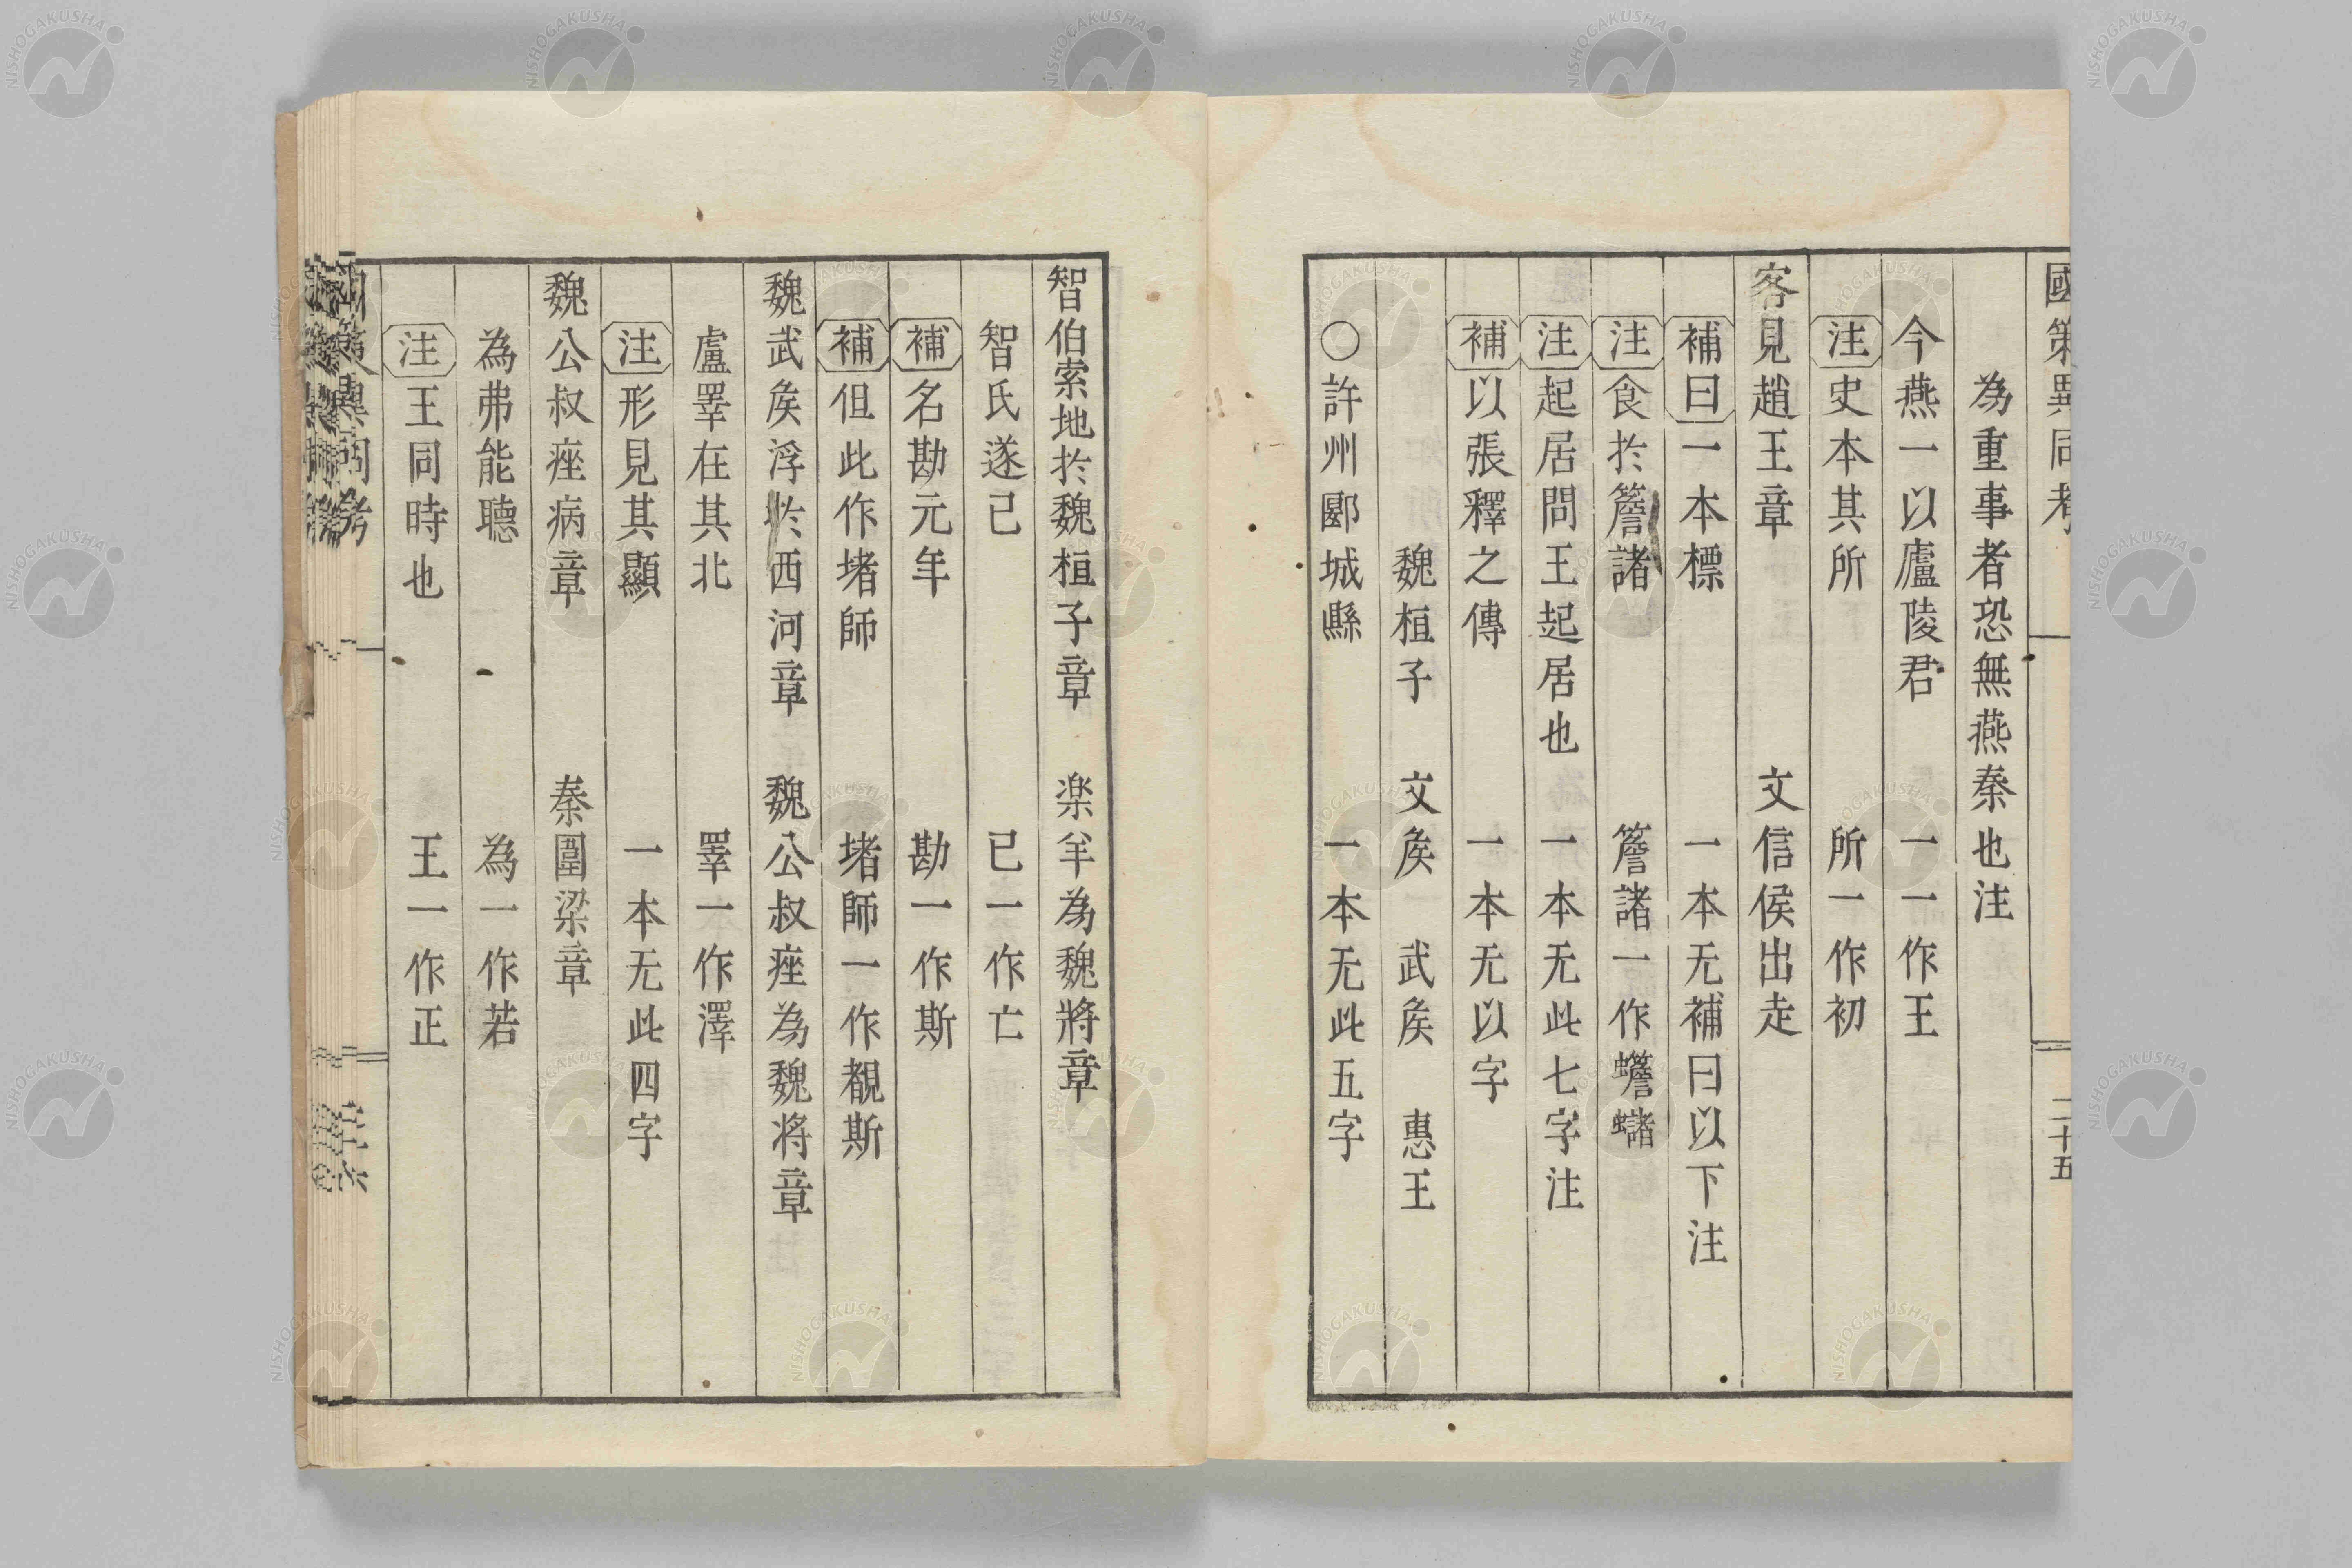 國策異同考 二十五
為重事者恐無燕秦也注
今燕一以廬陵君 一一作王
注史本其所 所一作初
客見趙王章 文信侯出走
補曰一本標 一本无補曰以下注
注食於簷諸 簷諸一作蟾蠩
注起居問王起居也 一本无此七字注
補以張釋之傳 一本无以字
魏桓子 文矦 武矦 惠王
○許州郾城縣 一本无此五字
智伯索地於魏桓子章 楽羊為魏將章
智氏遂己 已一作亡
補名勘元年 勘一作斯
補但此作堵師 堵師一作覩斯
魏武矦浮於西河章 魏公叔痤為魏将章
盧睪在其北 睪一作澤
注形見其顯 一本无此四字
魏公叔痤病章 秦圍梁章
為弗能聴 為一作若
注王同時也 王一作正
國策異同考
NISHOGAKUSHA